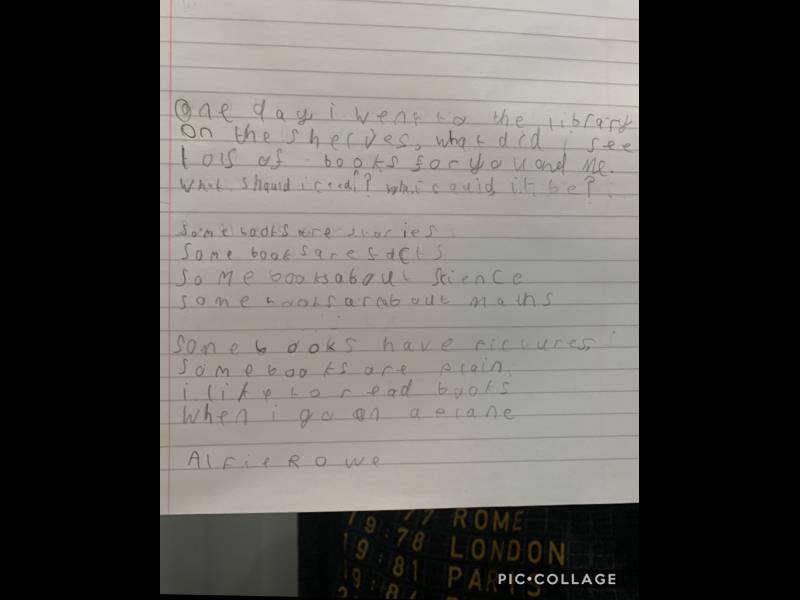 One day i went to the library
On the shelves, what did i see
Lots of books for you and me.
What should i read? What could it be?
Some books are stories
Some books are facts
Some books about science
some books are about maths
Some books have pictures,
Some books are plain
i like to read books
When i go on a plane
Alfie Rowe
77 ROME
19:78 LONDON
19:81
PIC•COLLAGE